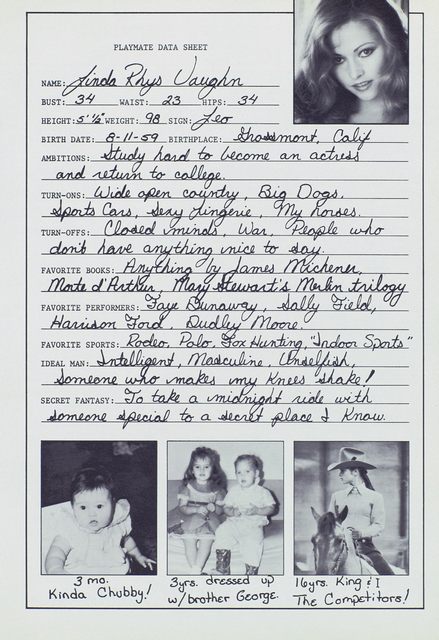 PLAYMATE DATA SHEET
NAME: Linda Rhys Vaughn
BUST: 34 WAIST: 23 HIPS: 34
HEIGHT: 5'½ WEIGHT: 98 SIGN: Leo
BIRTH DATE: 8-11-59 BIRTHPLACE: Grossmont, Calif
AMBITIONS: Study hard to become an actress
and return to college.
TURN-ONS: Wide open country, Big Dogs,
Sports Cars, Sexy Lingerie, My horses.
TURN-OFFS: Closed minds, War, People who
don't have anything nice to say.
FAVORITE BOOKS: Anything by James Michener,
Morte d'Arthur, Mary Stewart's Merlin trilogy
FAVORITE PERFORMERS: Faye Dunaway, Sally Field,
Harrison Ford, Dudley Moore.
FAVORITE SPORTS: Rodeo, Polo, Fox Hunting, "Indoor Sports"
IDEAL MAN: Intelligent, Masculine, Unselfish,
Someone who makes my Knees shake!
SECRET FANTASY: To take a midnight ride with
someone special to a secret place I know.
3 mo.
Kinda Chubby!
3yrs. dressed up
w/brother George.
16yrs. King & I
The Competitors!